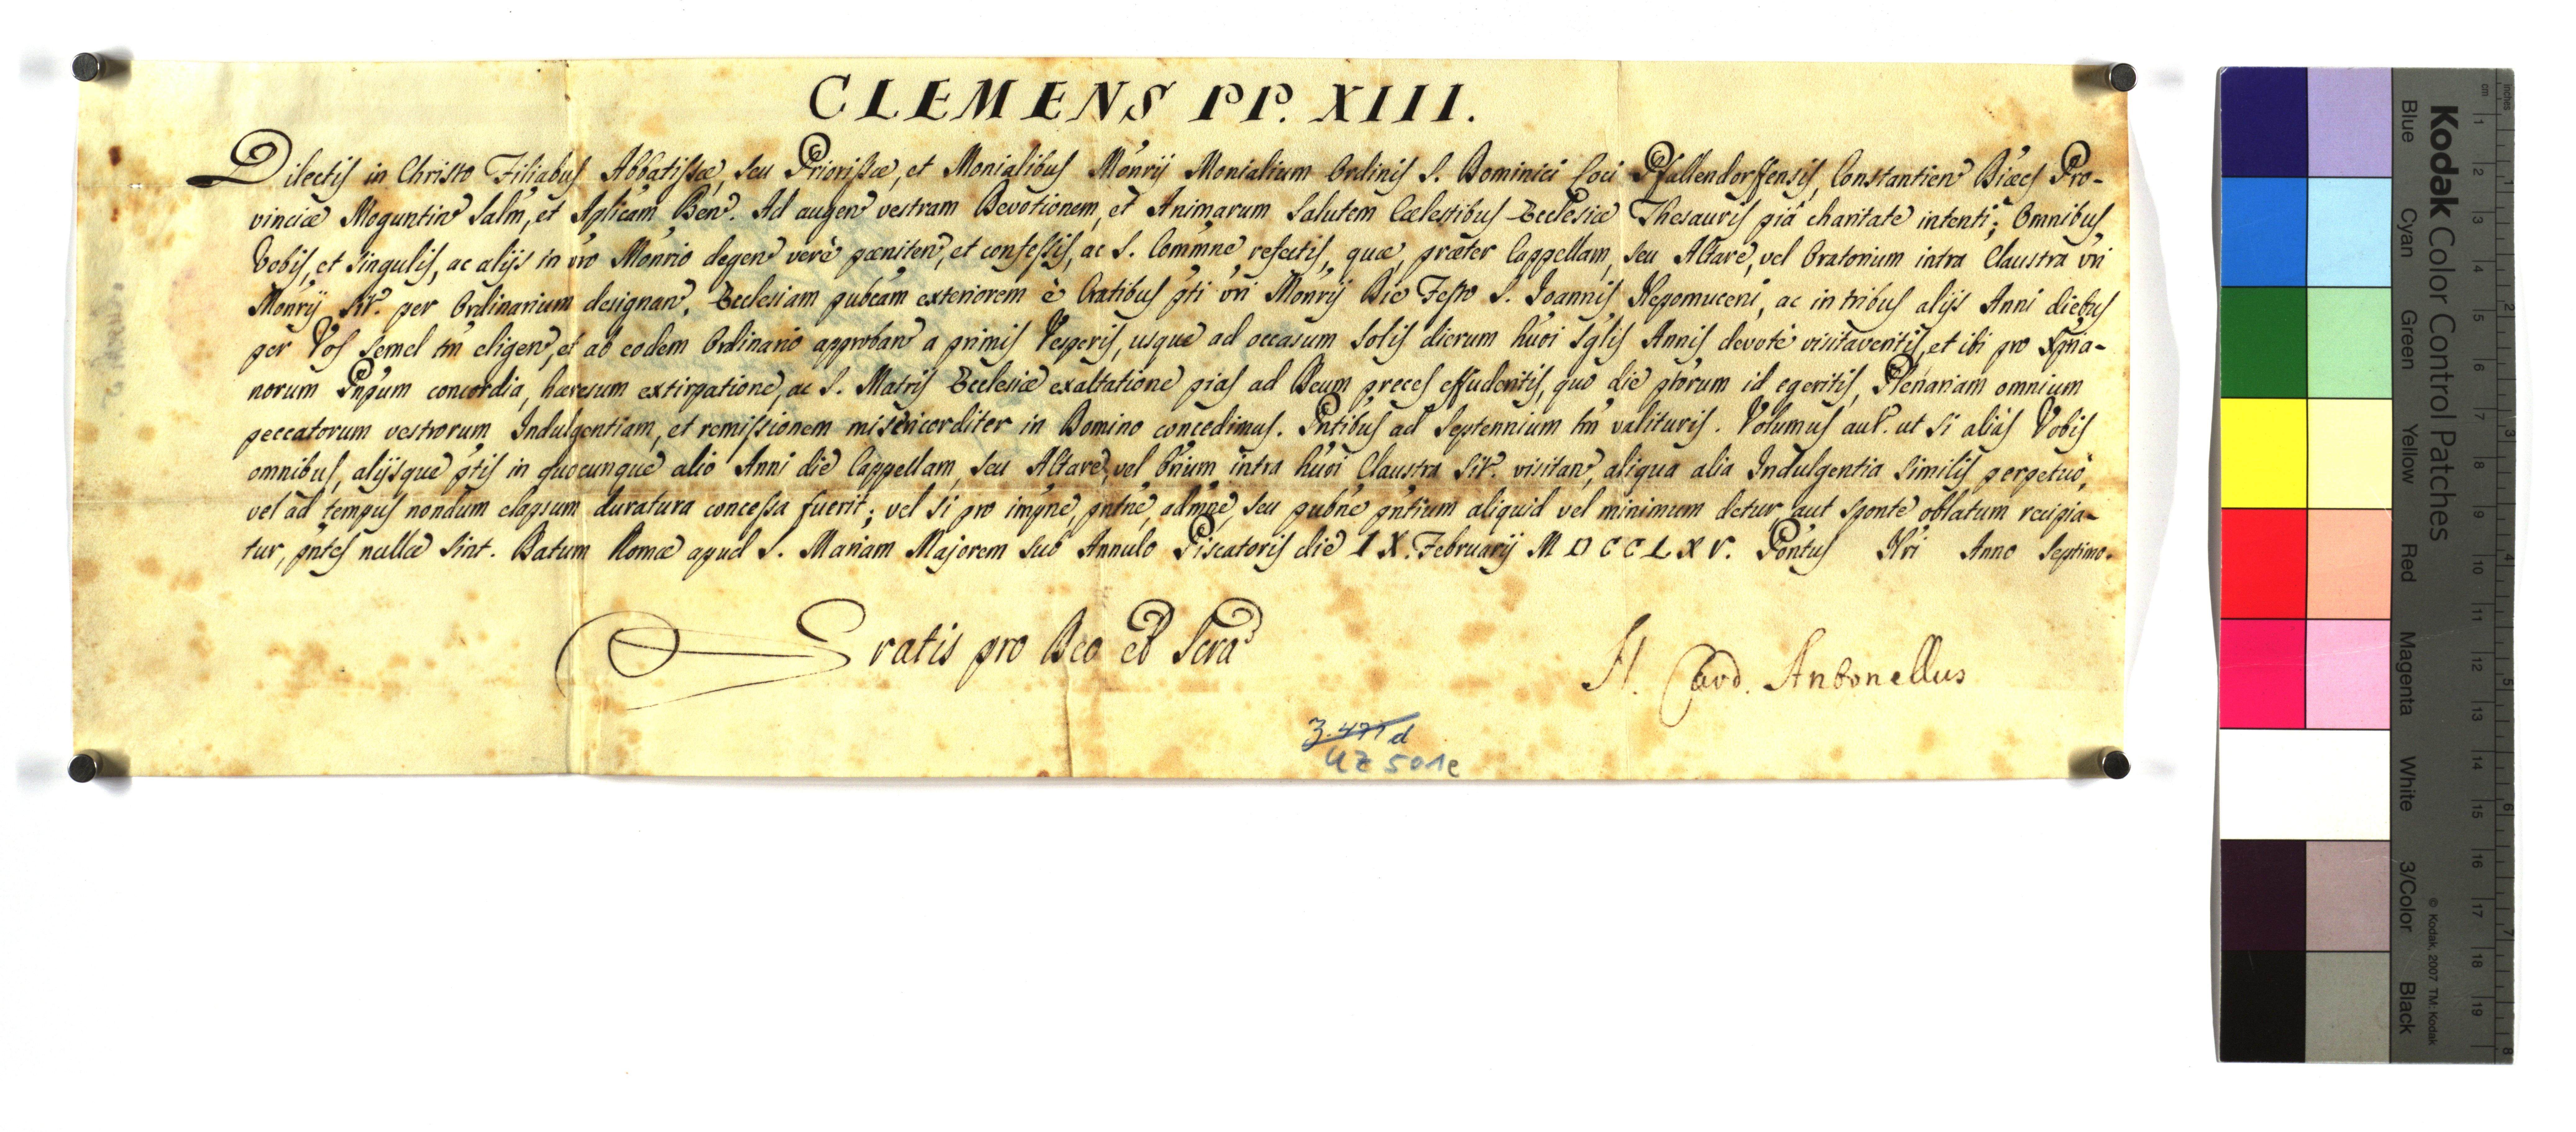 CLEMENS PP. XIII.
Dilectis in Christo Filiabus Abbatissæ, seu Priorissæ, et Monialibus Monrij Monialium Ordinis S. Dominici loci Pfallendorffensis, Constantien Diæcs Pro-
vinciæ Moguntin Salm, et Aplicam Ben. Ad augen vestram Devotionem, et Animarum Salutem Cælestibus Ecclesiæ Thesauris piâ charitate intenti; Omnibus
Vobis, et singulis, ac alijs in vro Monrio degen verè pæniten, et confessis, ac S. Commne refectis, quæ, præter Cappellam, seu Altare, vel Oratorium intra Claustra vri
Monrij sit. per Ordinarium designan, Ecclesiam pubcam exteriorem è Cratibus pti vri Monrij Die Festo S. Joannis Nepomuceni, ac in tribus alijs Anni diebus
per Vos semel tm eligen, et ab eodem Ordinario approban a primis Vesperis, usque ad occasum Solis dierum huoi sglis Annis devotè visitaveritis, et ibi pro Xpia-
norum Pnpum concordia, hæresum extirpatione, ac S. Matris Ecclesiæ exaltatione pias ad Deum preces effuderitis, quo die ptorum id egeritis, Plenariam omnium
peccatorum vestrorum Indulgentiam, et remissionem misericorditer in Domino concedimus. Pntibus ad Septennium tm valituris. Volumus aut. ut si aliàs Vobis
omnibus, alijsque ptis in quocunque alio Anni die Cappellam, seu Altare, vel Orium intra huoi Claustra sit. visitan, aliqua alia Indulgentia similis perpetuò,
vel ad tempus nondum elapsum duratura concessa fuerit; vel si pro impne, pntne, admne, seu pubne pntium aliquid vel minimum detur, aut sponte oblatum recipia-
tur, pntes nullæ sint. Datum Romæ apud S. Mariam Majorem sub Annulo Piscatoris die IX. Februarij MDCCLXV. Pontus Nri Anno Septimo.
Gratis pro Deo et Scra
N. Card. Antonellus
3.471 d
UZ 501e
Kodak Color Control Patches
Blue Cyan Green Yellow Red Magenta White 3/Color Black
© Kodak, 2007 TM: Kodak
inches
cm
1 2 3 4 5 6 7 8 9 10 11 12 13 14 15 16 17 18 19
1 2 3 4 5 6 7 8